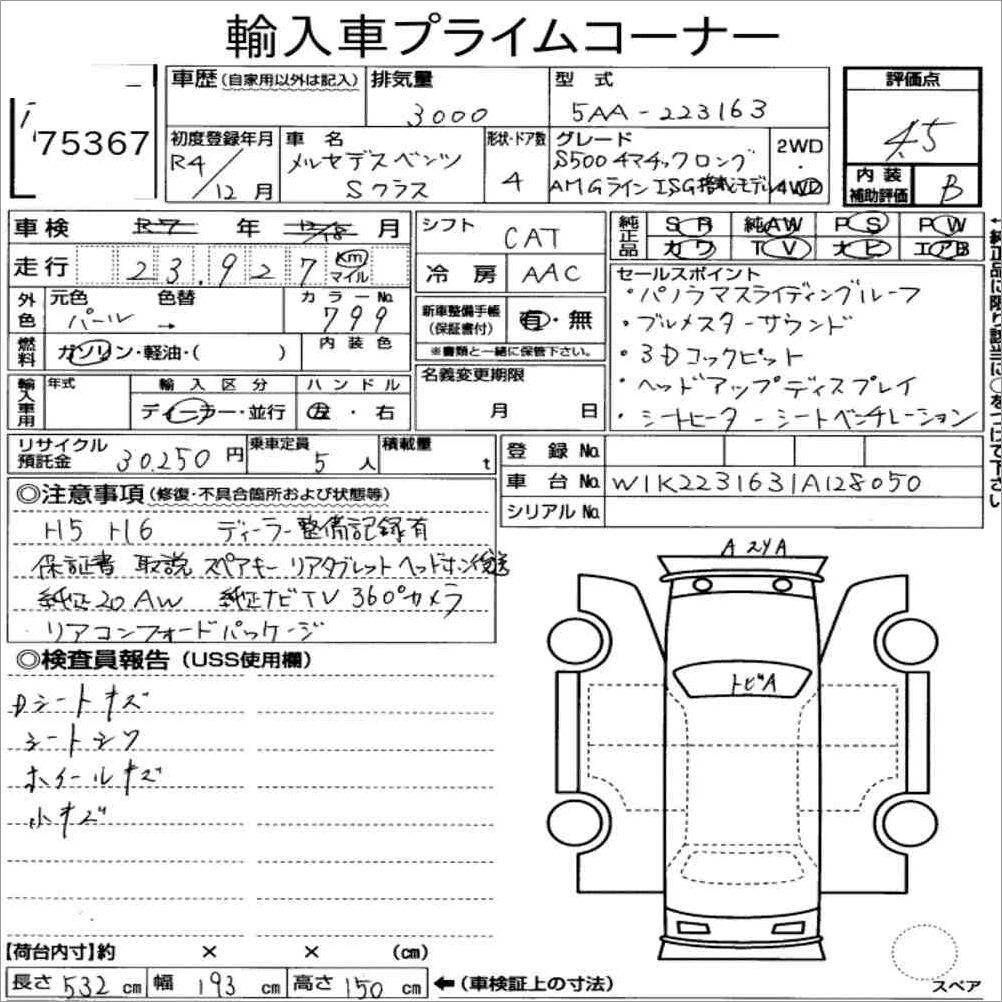 輸入車プライムコーナー
75367
車歴(自家用以外は記入)
排気量
3000
型 式
5AA-223163
評価点
4.5
初度登録年月
R4/12月
車 名
メルセデスベンツ
Sクラス
形状・ドア数
4
グレード
S500 4マチックロング
AMGライン ISG搭載モデル
2WD
・
4WD
内装
補助評価
B
車検 R7 年 12/18 月
走行 23,927 Km マイル
シフト CAT
冷房 AAC
純正品
SR 純AW PS PW
カワ TV ナビ エアB
←純正品に限り該当に○をつけて下さい
外色
元色 色替 カラーNo.
パール → 799
燃料
ガソリン・軽油・( )
内装色
新車整備手帳
(保証書付)
有・無
※書類と一緒に保管下さい。
セールスポイント
・パノラマスライディングルーフ
・ブルメスターサウンド
・3Dコックピット
・ヘッドアップディスプレイ
・シートヒーター シートベンチレーション
輸入車用
年式
輸入区分
ディーラー・並行
ハンドル
左・右
名義変更期限
月 日
リサイクル
預託金
30,250円
乗車定員
5人
積載量
t
登録No.
車台No. W1K2231631A128050
シリアルNo.
◎注意事項(修復・不具合箇所および状態等)
H5 H6 ディーラー整備記録有
保証書 取説 スペアキー リアタブレット ヘッドホン後送
純正20AW 純正ナビTV 360°カメラ
・リアコンフォートパッケージ
◎検査員報告(USS使用欄)
Dシートキズ
シートシワ
ホイールキズ
小キズ
A
A
トビA
【荷台内寸】約 × × (cm)
長さ532cm 幅193cm 高さ150cm ←(車検証上の寸法)
スペア